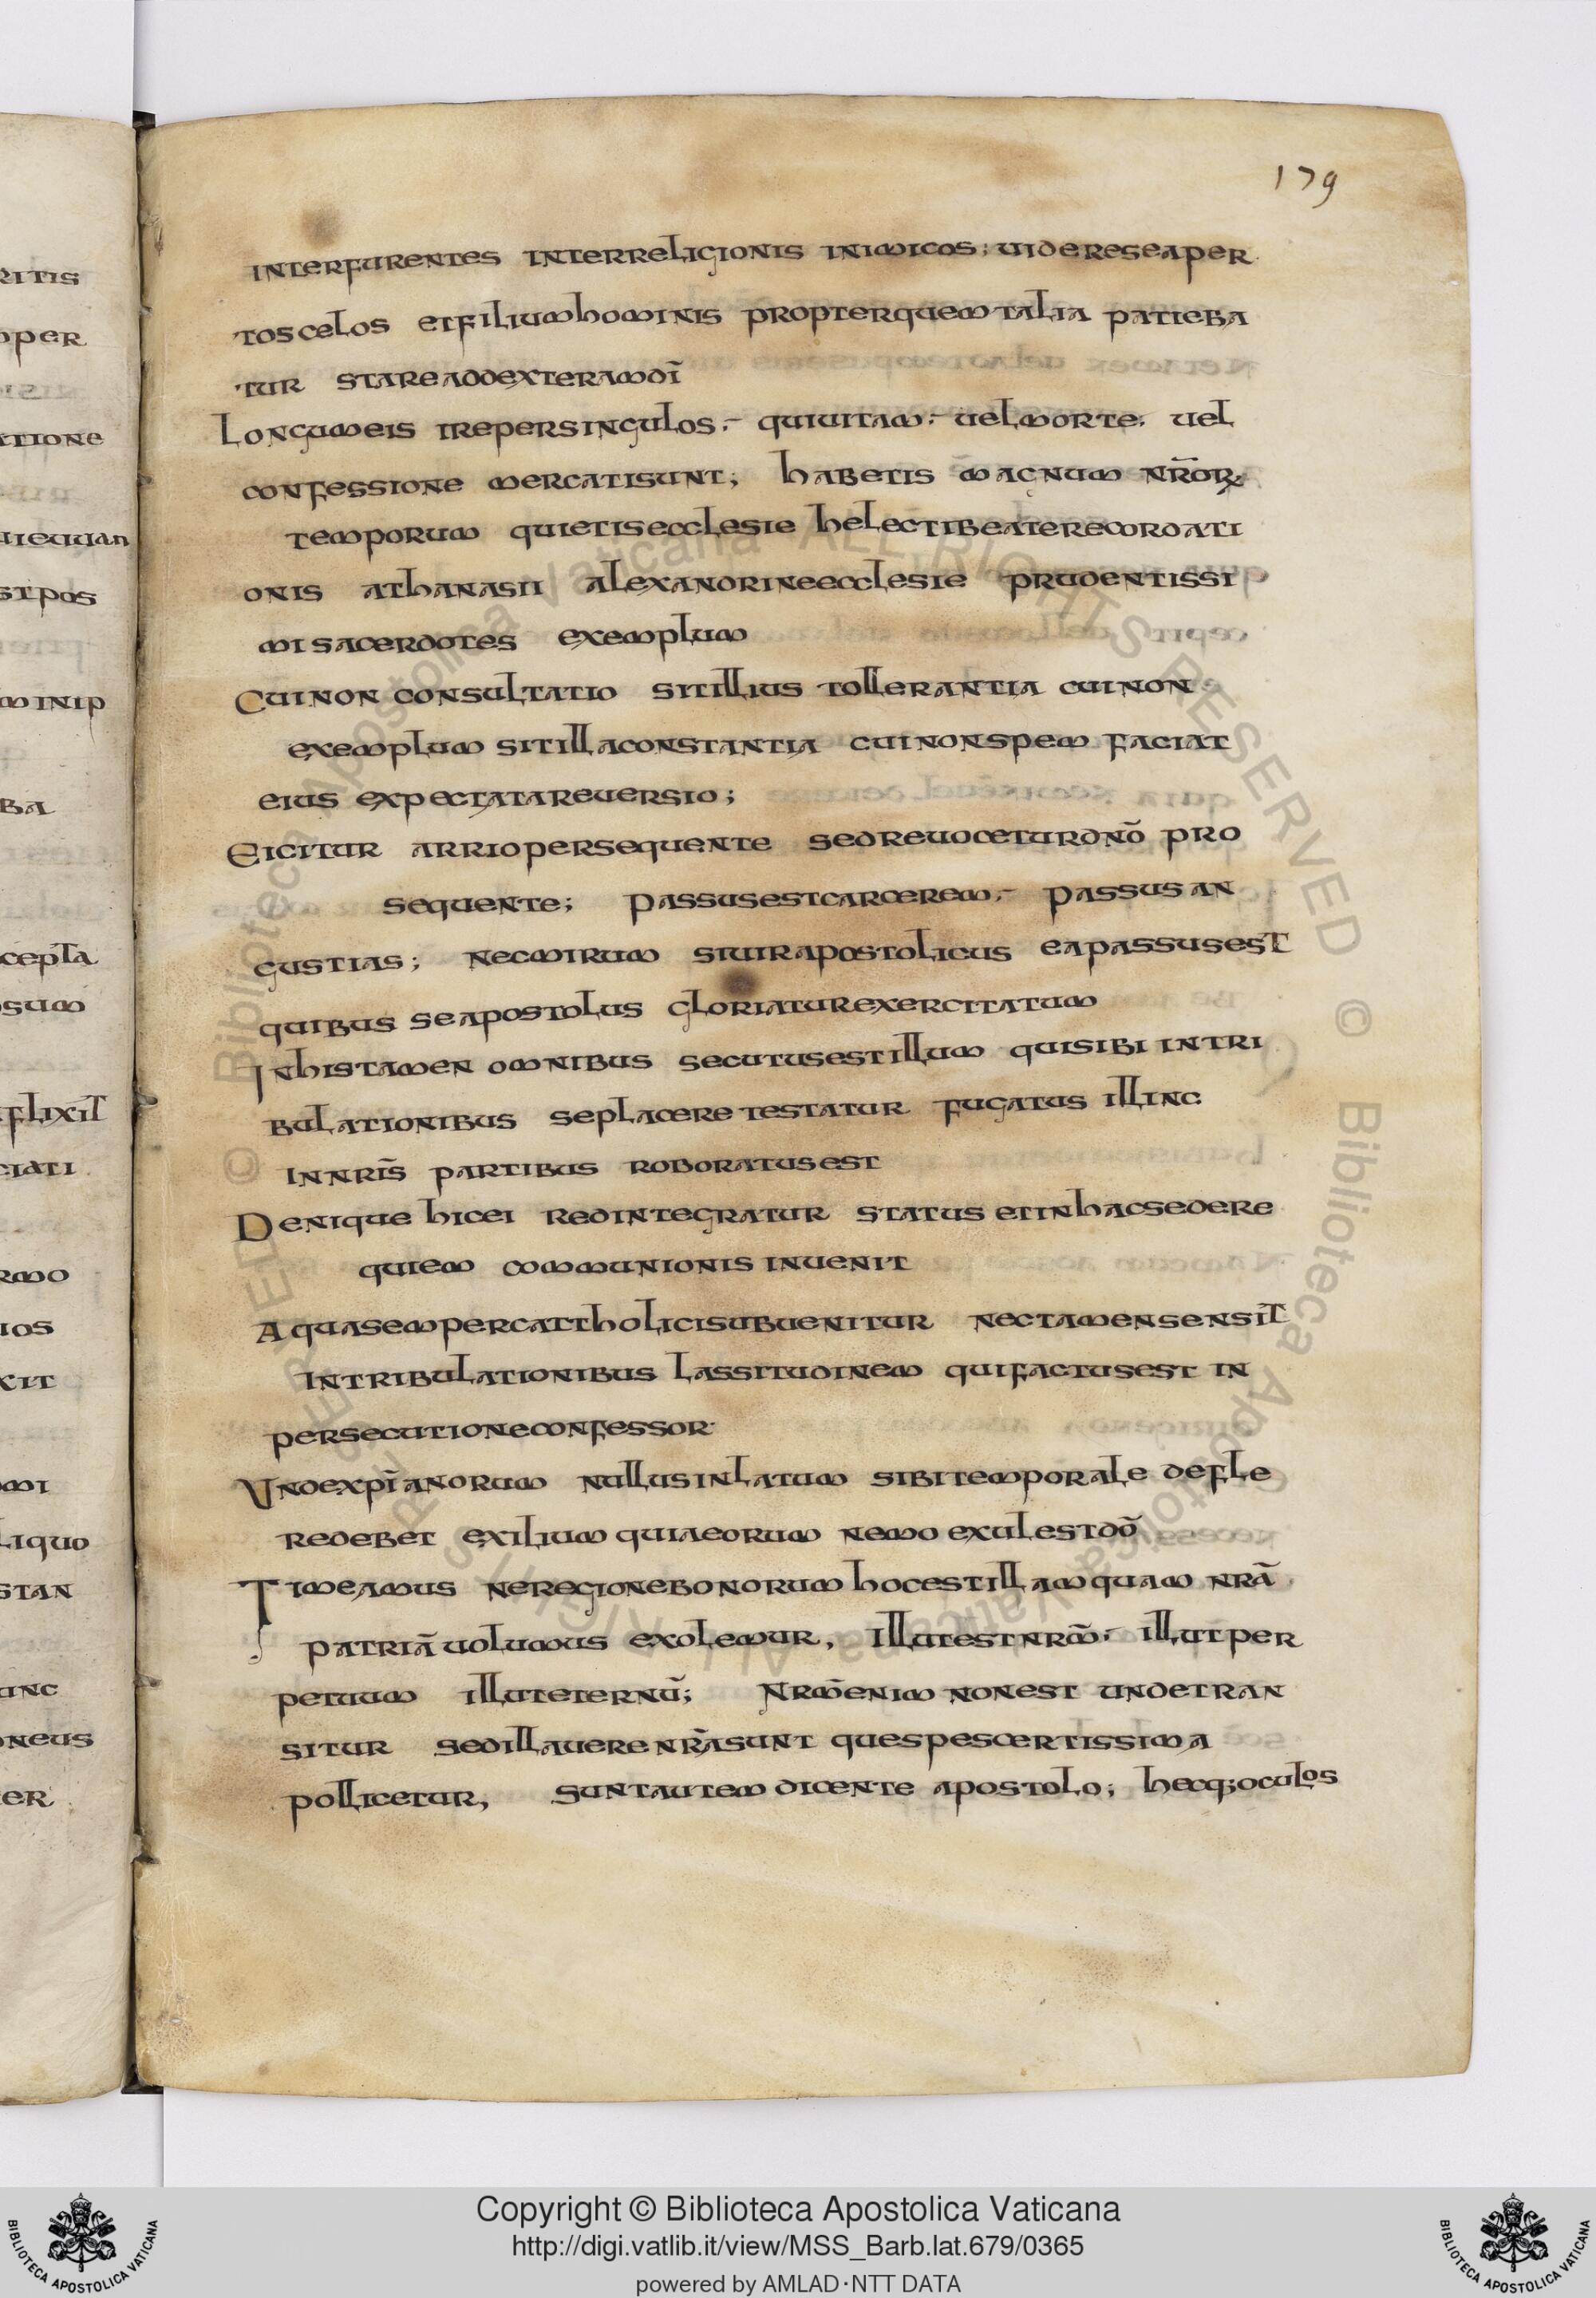 179
interfurentes interreligionis inimicos; uidereseaper
toscelos etfiliumhominis propterquemtalia patieba
tur stareaddexteramdī
Longumeis irepersingulos.- quiuitam.- uelmorte. uel
confessione mercatisunt; habetis magnum nr̄or
temporum quietisecclesie helectibeaterecordati
onis athanasii alexandrineecclesie prudentissi
mi sacerdotes exemplum
Cuinon consultatio sitillius tollerantia cuinon
exemplum sitillaconstantia cuinonspem faciat
eius expectatareuersio;
Eicitur arriopersequente sedreuoceturdnō pro
sequente; passusestcarcerem.- passus an
gustias; necmirum siuirapostolicus eapassusest
quibus seapostolus gloriaturexercitatum
Inhistamen omnibus secutusestillum quisibi intri
bulationibus seplacere testatur fugatus illinc
innrīs partibus roboratusest
Denique hicei redintegratur status etinhacsedere
quiem communionis inuenit
Aquasempercattholicisubuenitur nectamensensit
intribulationibus lassitudinem quifactusest in
persecutioneconfessor
Undexpīanorum nullusinlatum sibitemporale defle
redebet exilium quiaeorum nemo exulestdō
Timeamus neregionebonorum hocestillamquam nrā
patriā uolumus exolemur, illutestnrm̄. illutper
petuum illuteternū; Nrm̄enim nonest undetran
situr sedillauere nrāsunt quespescertissima
pollicetur, suntautem dicente apostolo; hecq;oculos
ritis
oper
atione
uietuuan
stpos
minip
ba
cepta
osum
flixit
ciati
rmo
ios
xit
omi
liquo
stan
unc
oneus
er
© Biblioteca Apostolica Vaticana ALL RIGHTS RESERVED © Biblioteca Apostolica Vaticana ALL RIGHTS RESERVED
Copyright © Biblioteca Apostolica Vaticana
http://digi.vatlib.it/view/MSS_Barb.lat.679/0365
powered by AMLAD·NTT DATA
BIBLIOTECA APOSTOLICA VATICANA
BIBLIOTECA APOSTOLICA VATICANA